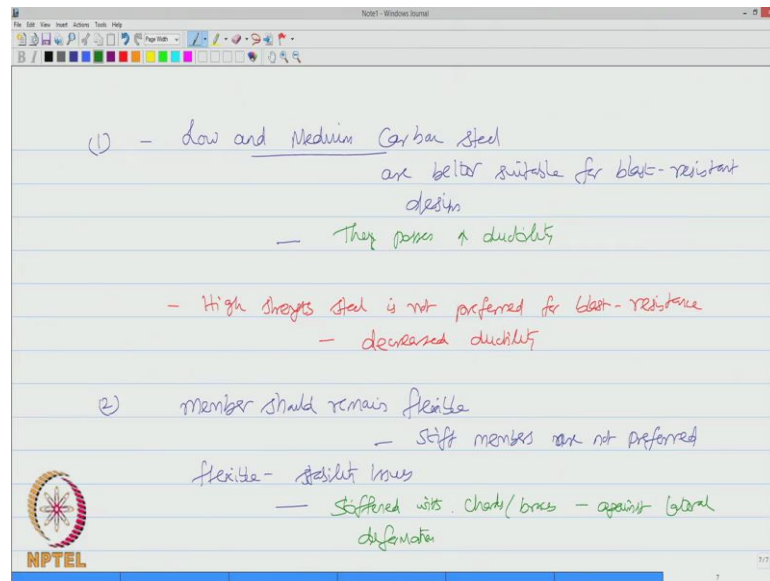 Note1 - Windows Journal
File Edit View Insert Actions Tools Help
Page Width
B I
(1) - Low and Medium Carbon steel
are better suitable for blast-resistant
design
— They posses ↑ ductility
- High strength steel is not preferred for blast-resistance
— decreased ductility
(2) member should remain flexible
— Stiff members are not preferred
flexible - stability issues
— Stiffened with chords/braces — against lateral
deformation
NPTEL
7/7
7